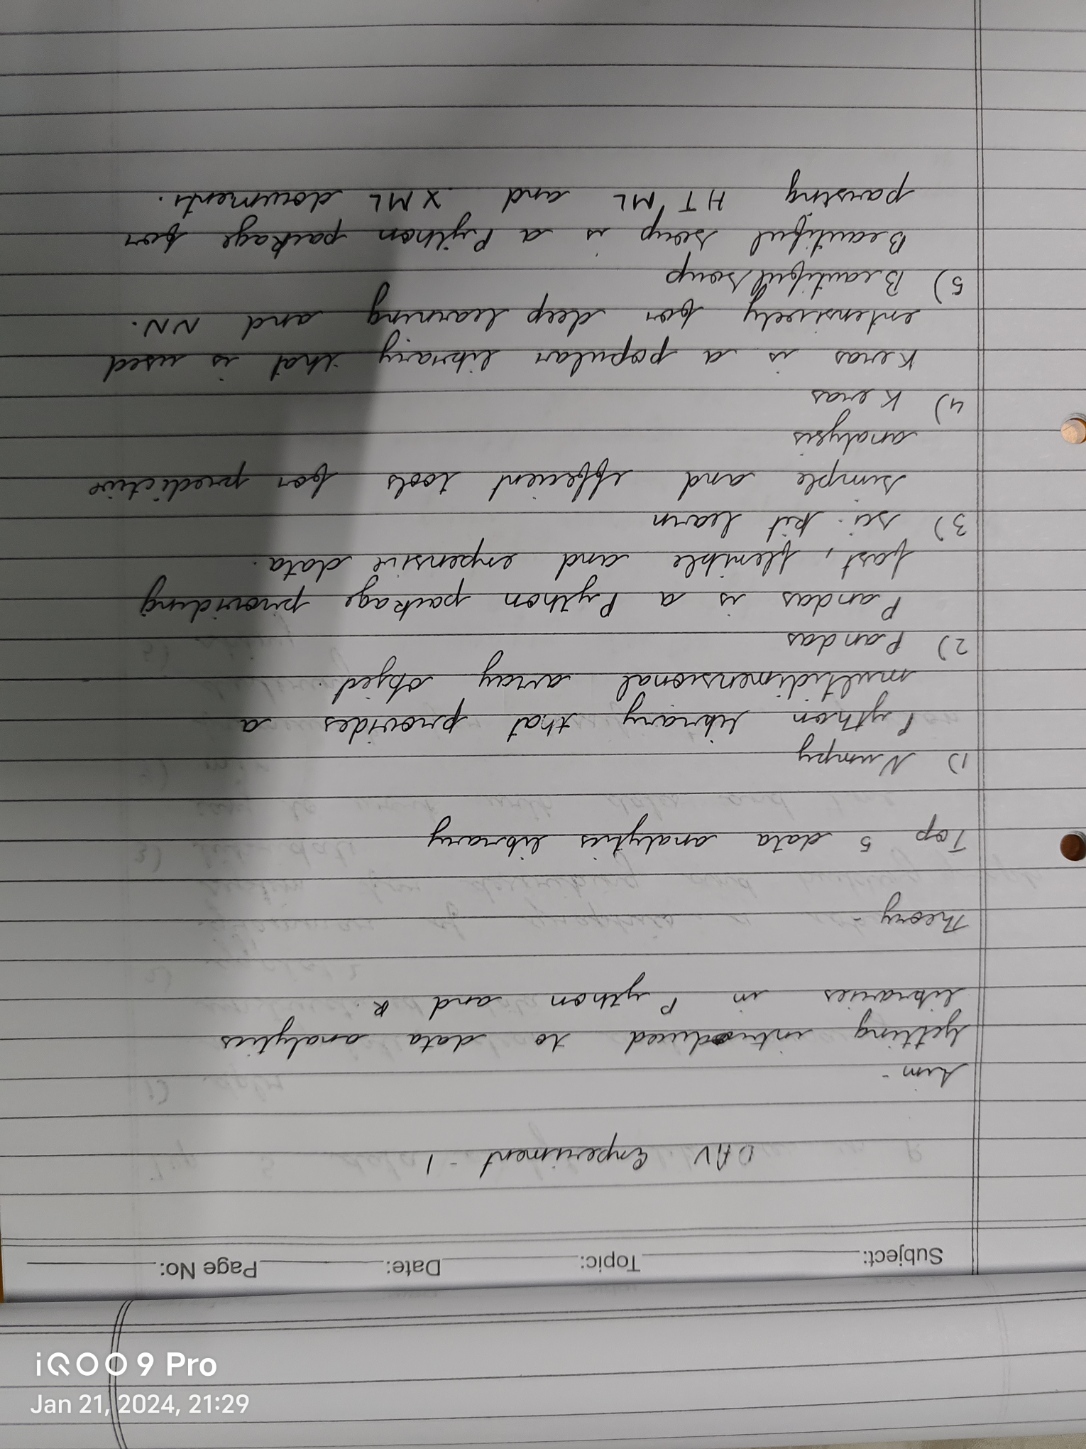 Subject: Topic: Date: Page No:
DAV Experiment - 1
Aim -
Getting introduced to data analytics
libraries in Python and R.
Theory -
Top 5 data analytics library
1) Numpy
Python library that provides a
multidimensional array object.
2) Pandas
Pandas is a Python package providing
fast, flexible and expensive data.
3) sci-kit learn
simple and efficient tools for predictive
analysis
4) Keras
Keras is a popular library that is used
extensively for deep learning and NN.
5) Beautiful soup
Beautiful soup is a Python package for
parsing HTML and XML documents.
iQOO 9 Pro
Jan 21, 2024, 21:29